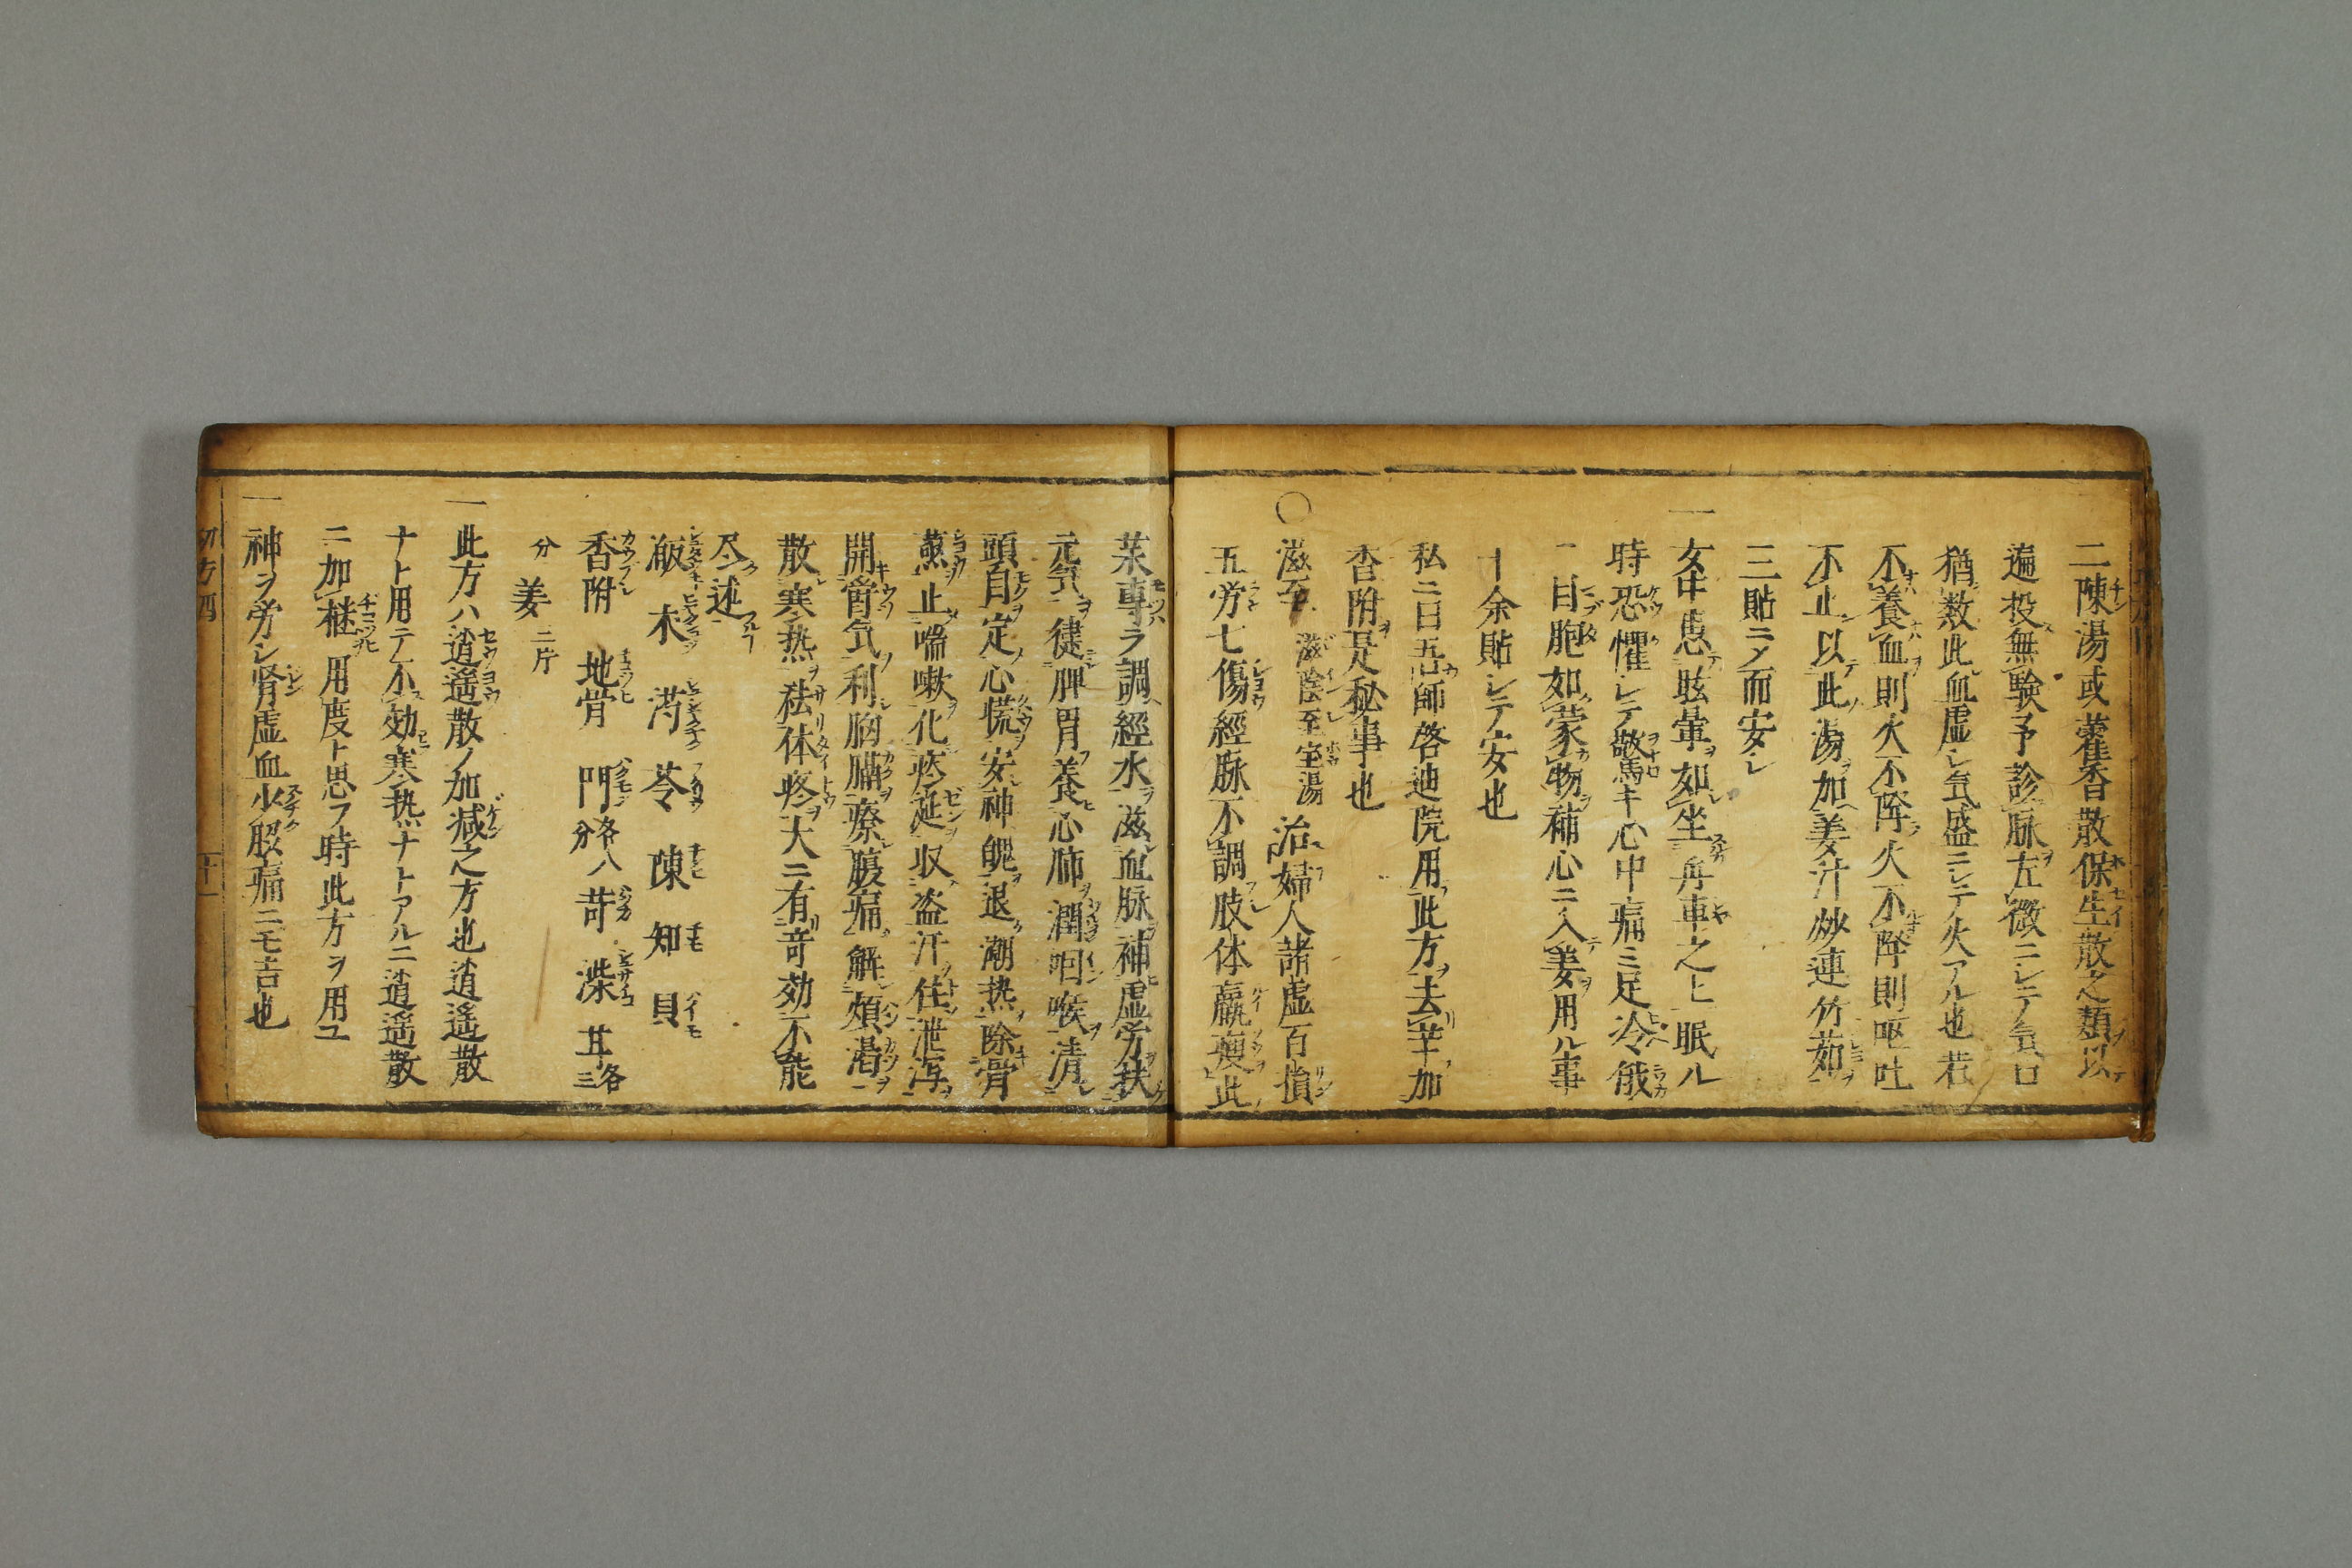 二陳湯或藿香散保生散之類以
遍投無験予診脉左微ニシテ気口
猶数此血虚シ気盛ニシテ火アル也若
不養血則火不降火不降則嘔吐
不止以此湯加姜汁炒連竹茹
三貼ニメ而安シ
一女中患眩暈如坐舟車之上眠ル
時恐懼シテ驚キ心中痛ミ足冷俄
ニ目胞如蒙物補心ニ入姜用ル事
十余貼シテ安也
私ニ曰吾師啓迪院用此方去芐加
杏附是秘事也
○滋至 滋陰至宝湯 治婦人諸虚百損
五労七傷經脉不調肢体羸痩此
茱專ラ調經水滋血脉補虚労扶
元気健脾胃養心肺潤咽喉清
頭目定心慌安神魄退潮热除骨
蒸止喘嗽化痰涎収盗汗住泄瀉
開胃気利胸膈療腹痛解煩渇
散寒热祛体疼大ニ有奇効不能
尽述
皈 朮 芍 苓 陳 知 貝
香附 地骨 門各八分 苛 柴 甘各三
分 姜二片
一此方ハ逍遥散ノ加減之方也逍遥散
ナト用テ不効寒热ナトアルニ逍遥散
ニ加 用度ト思フ時此方ヲ用ユ
一神ヲ労シ腎虚血少股痛ニモ吉也
切方四 十一